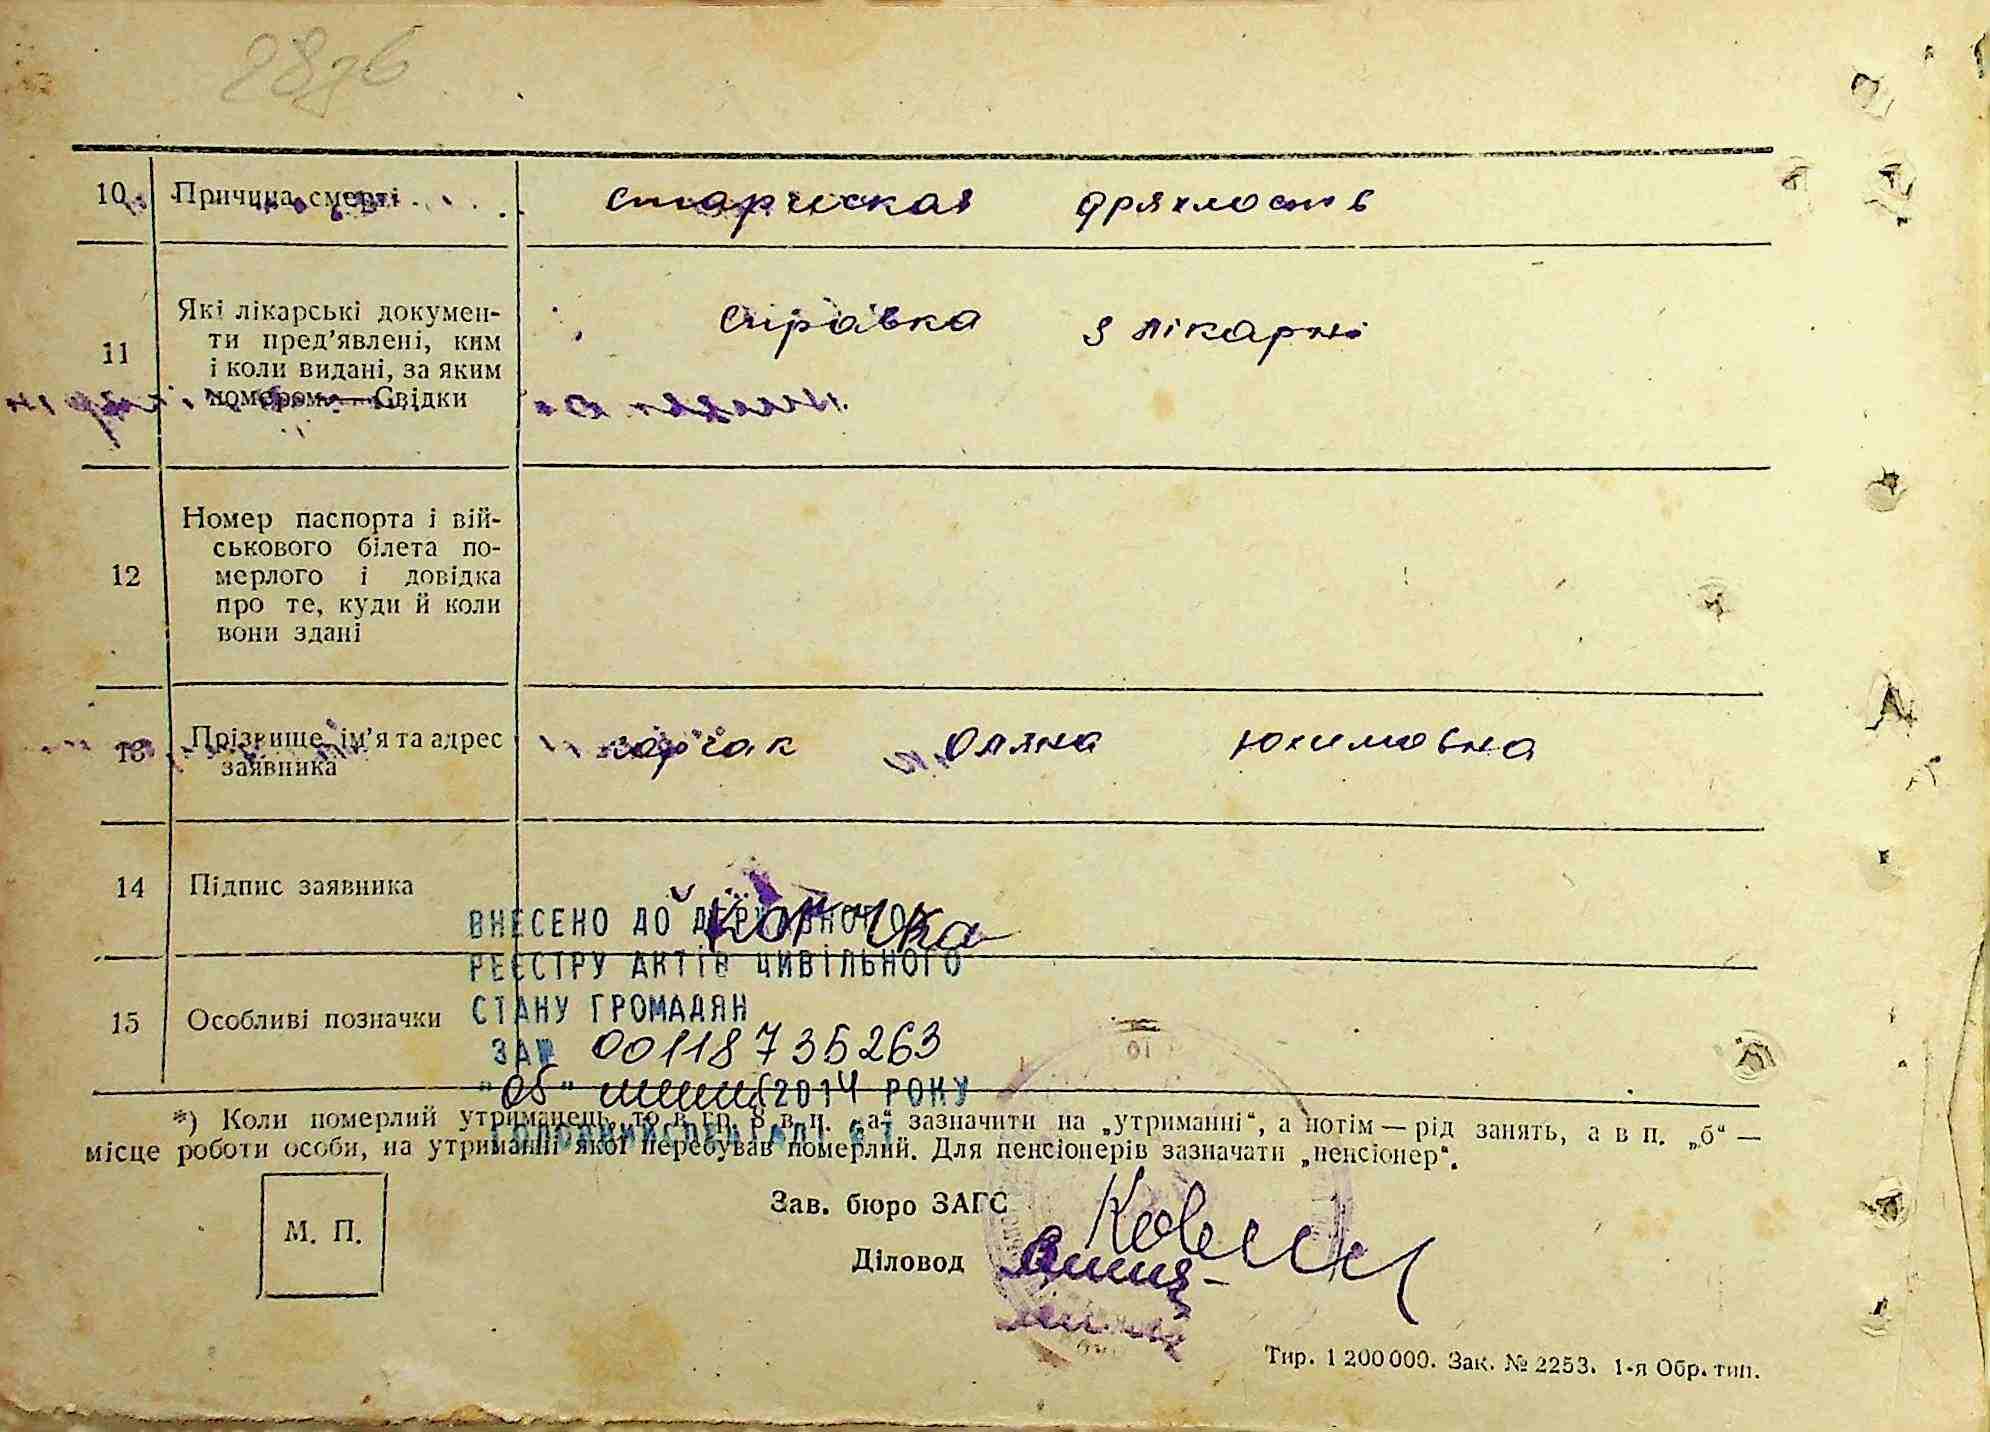 10 Причина смерті старческая дряхлость
11 Які лікарські докумен-
ти пред’явлені, ким
і коли видані, за яким
номером. Свідки
справка з лікарні
12 Номер паспорта і вій-
ськового білета по-
мерлого і довідка
про те, куди й коли
вони здані
13 Прізвище, ім’я та адрес
заявника
Оляна Юхимовна
14 Підпис заявника
ВНЕСЕНО ДО ДЕРЖАВНОГО
РЕЄСТРУ АКТІВ ЦИВІЛЬНОГО
15 Особливі позначки
СТАНУ ГРОМАДЯН
ЗА № 00118735263
"05" 2014 РОКУ
*) Коли померлий утриманець, то в гр. 8 в п. „а“ зазначити на „утриманні“, а потім — рід занять, а в п. „б“ —
місце роботи особи, на утриманні якої перебував померлий. Для пенсіонерів зазначати „пенсіонер“.
М. П.
Зав. бюро ЗАГС
Діловод
Тир. 1 200 000. Зак. № 2253. 1-я Обр. тип.